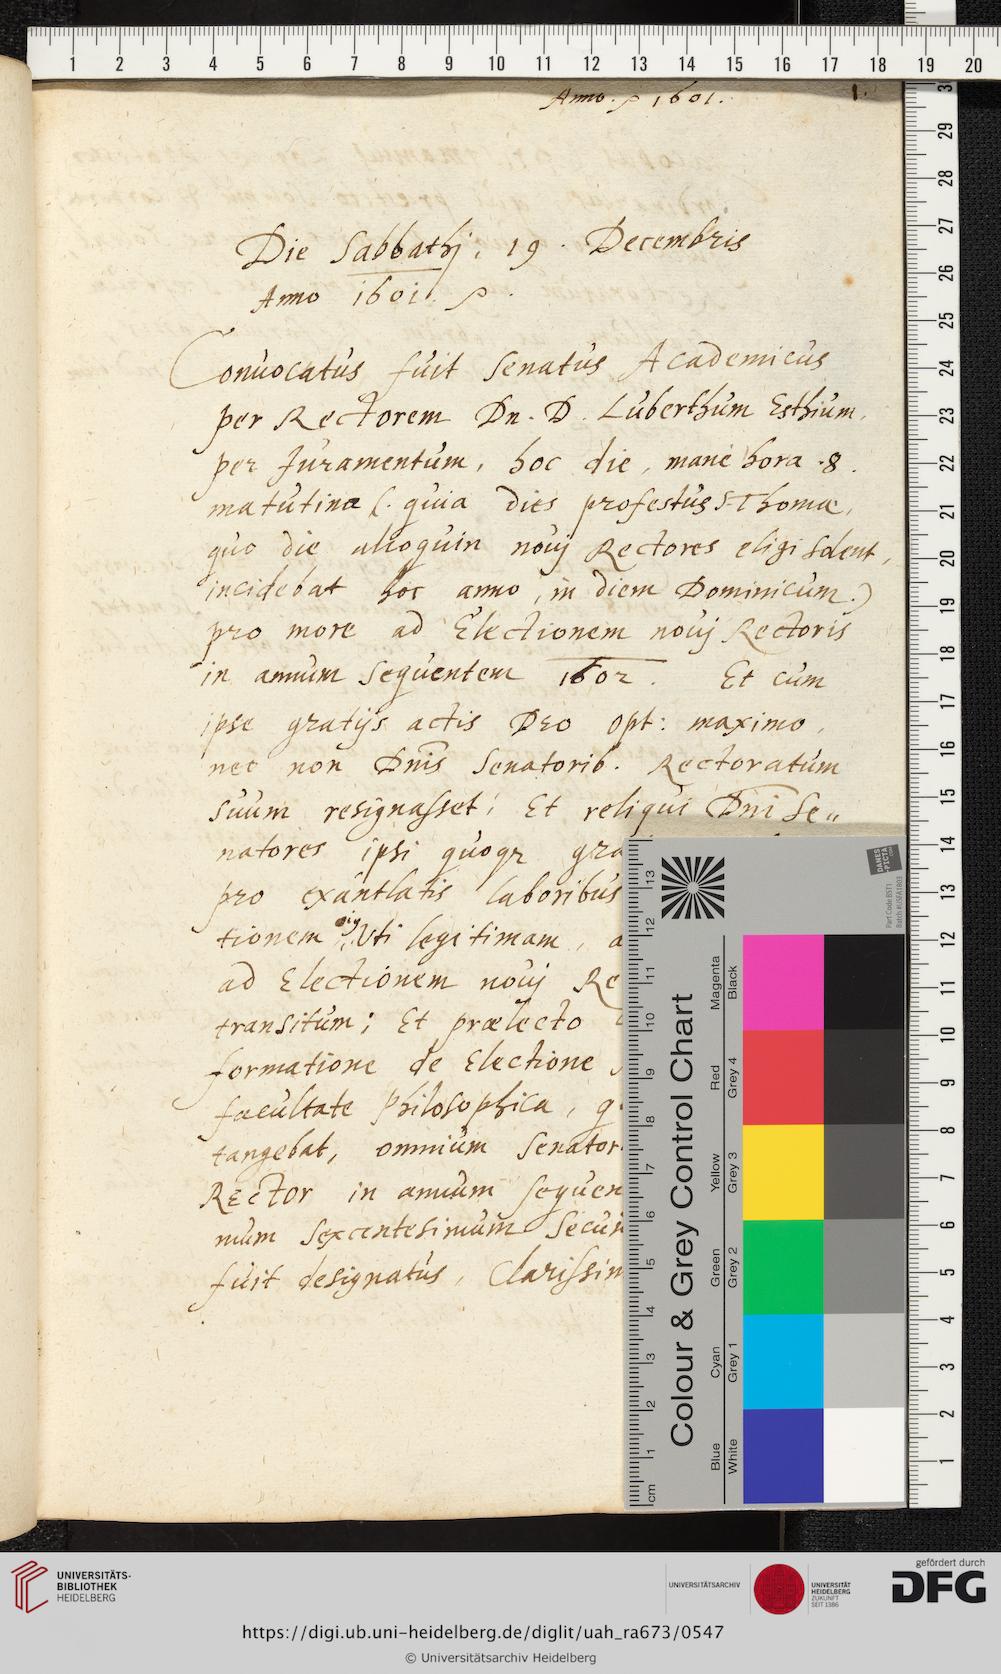 1 2 3 4 5 6 7 8 9 10 11 12 13 14 15 16 17 18 19 20
Anno. 1601. 1.
Die Sabbathj, 19. Decembris
Anno 1601.
Conuocatus fuit Senatus Academicus
per Rectorem Dn. D. Luberthum Esthium,
per Juramentum, hoc die, mane hora 8.
matutina (. quia dies profestus S. Thomæ,
quo die alioquin novj Rectores eligi solent,
incidebat hoc anno, in diem Dominicum.)
pro more ad Electionem novj Rectoris
in annum sequentem 1602. Et cum
ipse gratijs actis Deo opt: maximo,
nec non Dnis Senatorib. Rectoratum
suum resignasset; Et reliqui Dni Se„
natores ipsi quoqz gra
pro exantlatis laboribus
tionem Uti legitimam, a
ad Electionem novj Re
transitum; Et prælecto
formatione de Electione
facultate Philosophica, q
tangebat, omnium Senator
Rector in annum sequen
mum sexcentesimum secun
fuit designatus, Clarissim
30 29 28 27 26 25 24 23 22 21 20 19 18 17 16 15 14 13 12 11 10 9 8 7 6 5 4 3 2 1
DANES PICTA .COM
Part Code BST1
Batch #USFA1803
13 12 11 10 9 8 7 6 5 4 3 2 1 cm
Colour & Grey Control Chart
Magenta Black
Red Grey 4
Yellow Grey 3
Green Grey 2
Cyan Grey 1
Blue White
UNIVERSITÄTS-
BIBLIOTHEK
HEIDELBERG
UNIVERSITÄTSARCHIV
UNIVERSITÄT
HEIDELBERG
ZUKUNFT
SEIT 1386
gefördert durch
DFG
https://digi.ub.uni-heidelberg.de/diglit/uah_ra673/0547
© Universitätsarchiv Heidelberg